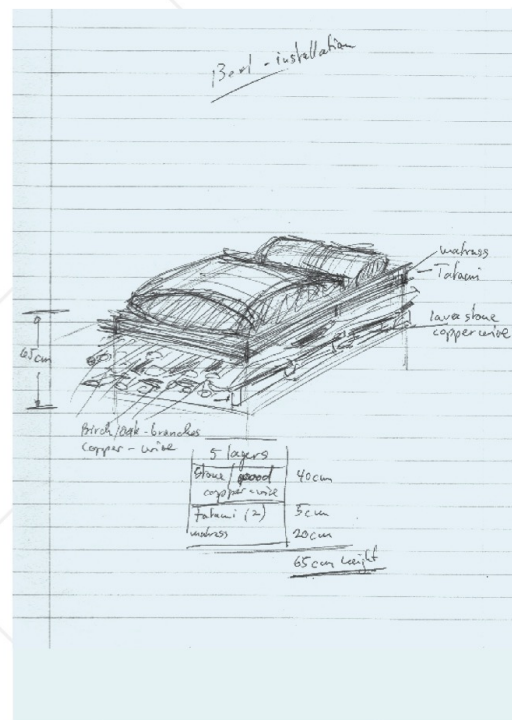 Bed - installation
matrass
Tatami
lava stone
copper wire
65cm
Birch/oak-branches
copper-wire
5 layers
Stone/wood 40cm
copper-wire
Tatami (2) 5cm
matrass 20cm
65cm height